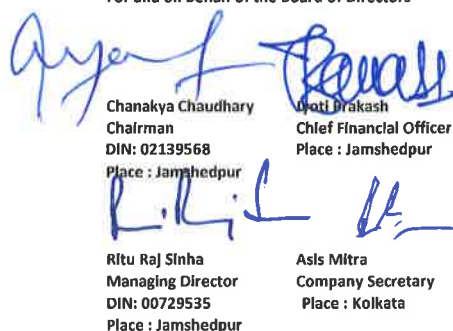 For and on behalf of the Board of Directors
Chanakya Chaudhary
Chairman
DIN: 02139568
Place : Jamshedpur
Jyoti Prakash
Chief Financial Officer
Place : Jamshedpur
Ritu Raj Sinha
Managing Director
DIN: 00729535
Place : Jamshedpur
Asis Mitra
Company Secretary
Place : Kolkata